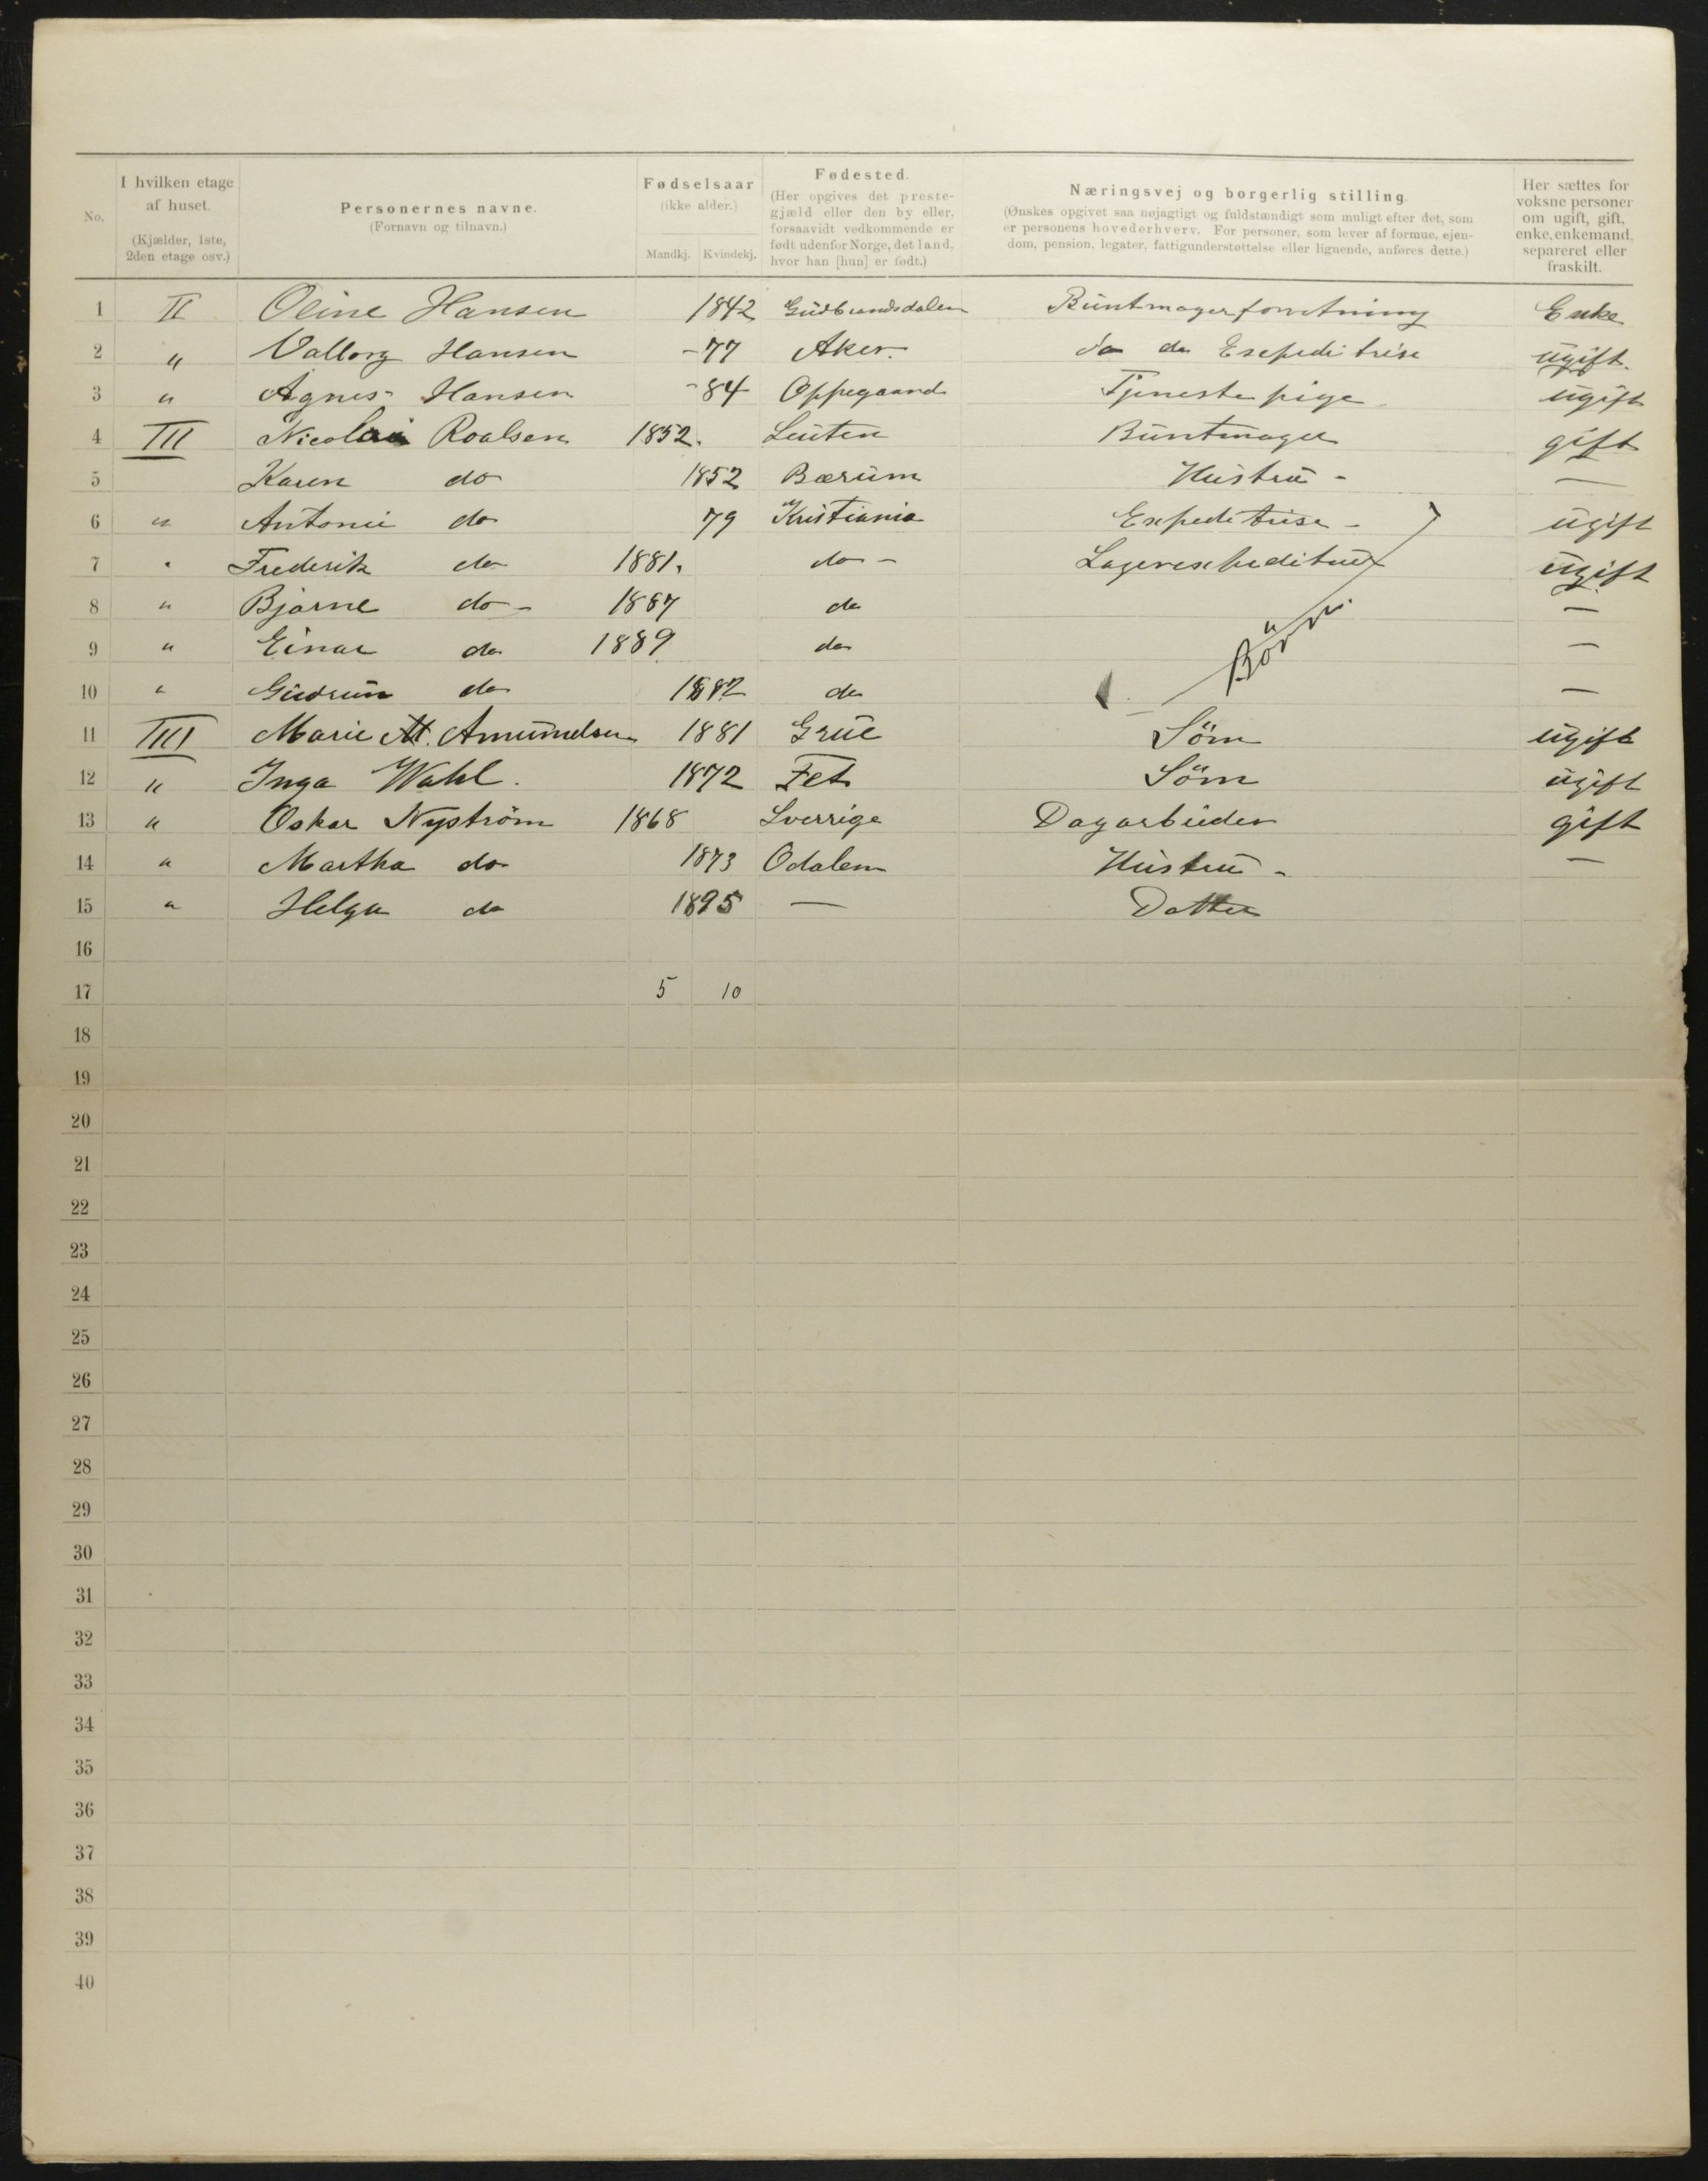 No.
I hvilken etage af huset. (Kjælder, 1ste, 2den etage osv.)
Personernes navne. (Fornavn og tilnavn.)
Fødselsaar (ikke alder.) Mandkj. Kvindekj.
Fødested. (Her opgives det prestegjæld eller den by eller, forsaavidt vedkommende er født udenfor Norge, det land, hvor han [hun] er født.)
Næringsvej og borgerlig stilling. (Ønskes opgivet saa nøjagtigt og fuldstændigt som muligt efter det, som er personens hovederhverv. For personer, som lever af formue, ejendom, pension, legater, fattigunderstøttelse eller lignende, anføres dette.)
Her sættes for voksne personer om ugift, gift, enke, enkemand, separeret eller fraskilt.
1 II Oline Hansen 1842 Gudbrandsdalen Buntmagerforretning Enke
2 " Valborg Hansen -77 Aker. do do Expeditrise ugift.
3 " Agnes Hansen -84 Oppegaard Tjenestepige ugift
4 III Nicolai Roalsen 1852. Løiten Buntmager gift
5 Karen do 1852 Bærum Hustru - —
6 " Antonie do 79 Kristiania Expeditrise - ugift
7 " Frederik do 1881. do - Lagerexpeditør ugift
8 " Bjarne do - 1887 do —
9 " Einar do 1889 do —
Börn.
10 " Gudrun do 1882 do —
11 III Marie M. Amundsen 1881 Grue Söm ugift
12 " Inga Wahl. 1872 Fet Söm ugift
13 " Oskar Nyström 1868 Sverrige Dagarbeider gift
14 " Martha do 1873 Odalen Hustru - —
15 " Helga do 1895 — Datter
16
17 5 10
18
19
20
21
22
23
24
25
26
27
28
29
30
31
32
33
34
35
36
37
38
39
40